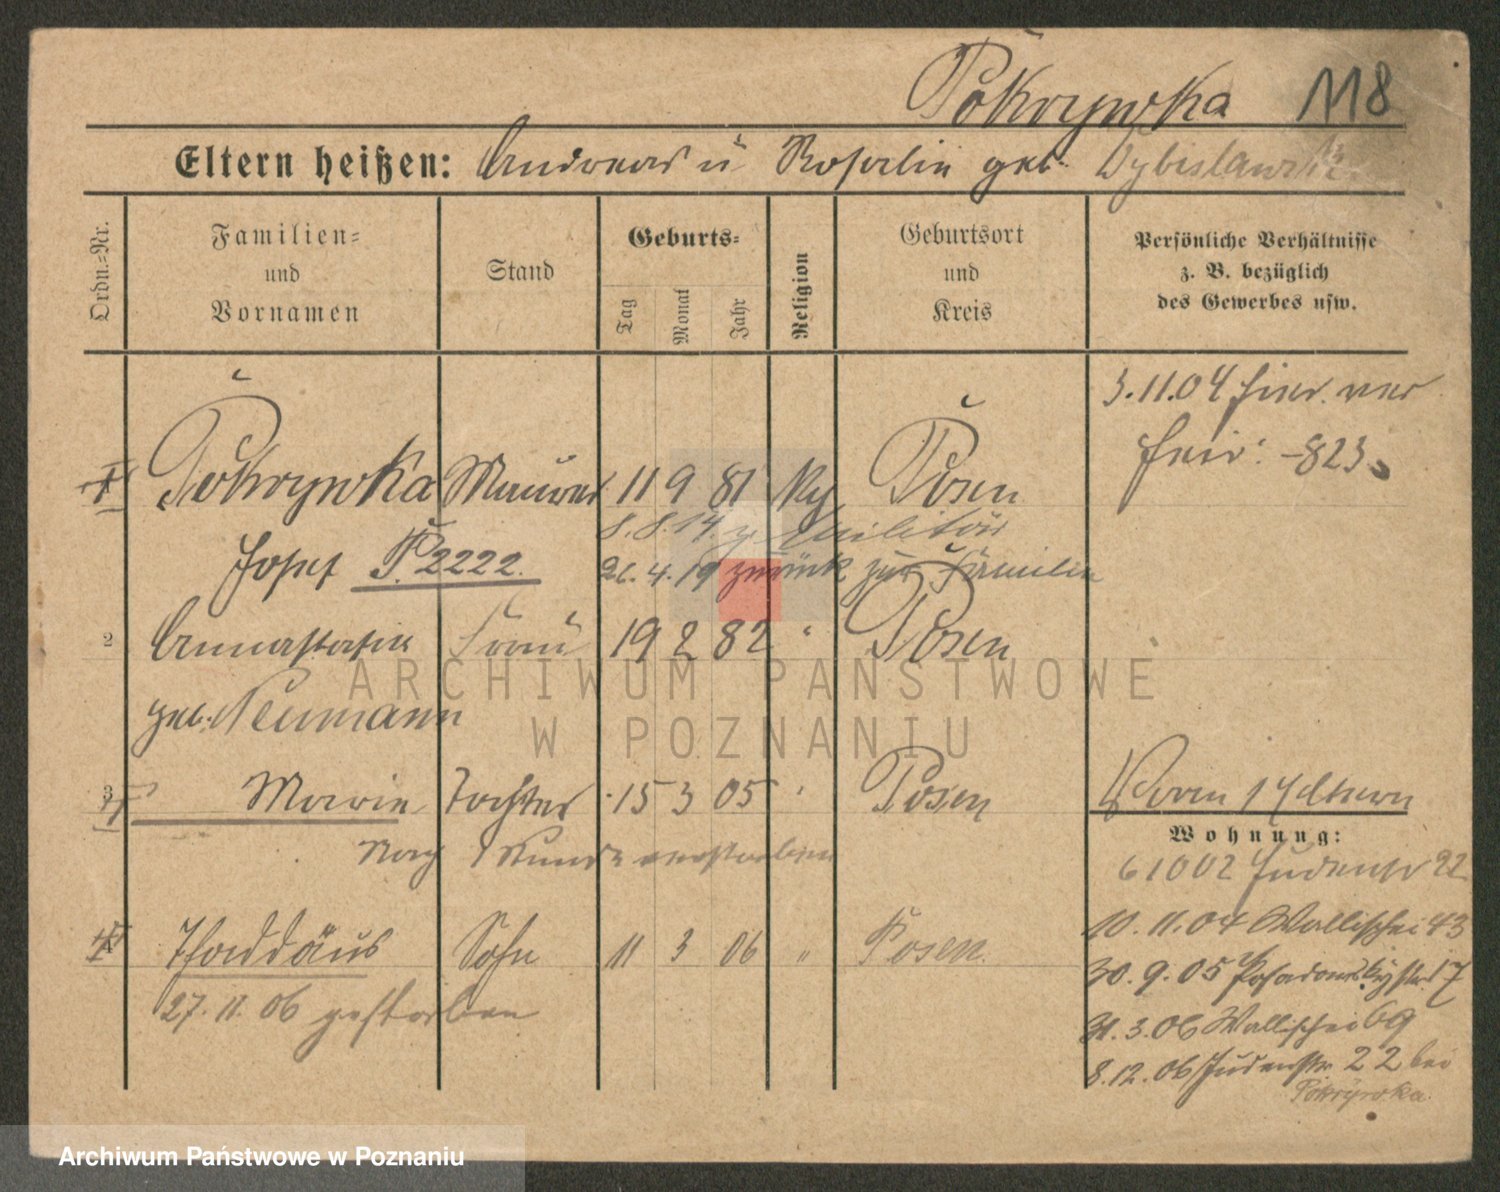 Pokrywka 118
Eltern heißen: Andreas u Rosalie geb.
Ordn.-Nr.
Familien-
und
Vornamen
Stand
Geburts-
Tag
Monat
Jahr
Religion
Geburtsort
und
Kreis
Persönliche Verhältnisse
z. B. bezüglich
des Gewerbes usw.
3.11.04 hier ver
heir. -823.
Pokrywka Maurer 11 9 81 Posen
8.8.14. z. Militär
Josef P. 2222.
26.4.19 zurück zur Familie
2 Annastasie Frau 19 2 82 " Posen
geb. Neumann
3 Marie Tochter 15 3 05 " Posen
nach 1 Stunde verstorben
4 Thaddäus Sohn 11 3 06 " Posen.
27.11.06 gestorben
Wohnung:
61002 Judenstr 22
10.11.04 Wallischei 43
30.9.05 17
31.3.06 Wallischei 69
8.12.06 Judenstr. 22 bei
Pokrywka.
ARCHIWUM PAŃSTWOWE
W POZNANIU
Archiwum Państwowe w Poznaniu